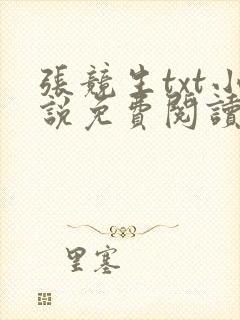 張競生txt小
說免費閱讀
里塞